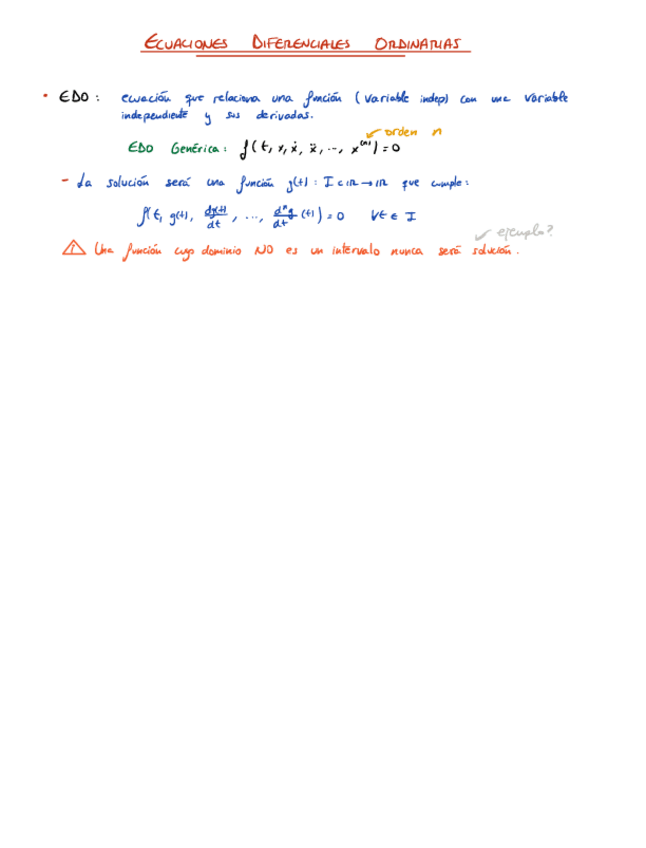 ECUACIONES DIFERENCIALES ORDINARIAS
• EDO: ecuación que relaciona una función (variable indep) con una variable
independiente y sus derivadas.
orden n
EDO Genérica: f(t, x, ẋ, ẍ, ..., x⁽ⁿ⁾) = 0
- La solución será una función g(t): I ⊂ ℝ → ℝ que cumple:
f(t, g(t), dg(t)/dt, ..., dⁿg/dt (t)) = 0 ∀t ∈ I
ejemplo?
⚠ Una función cuyo dominio NO es un intervalo nunca será solución.